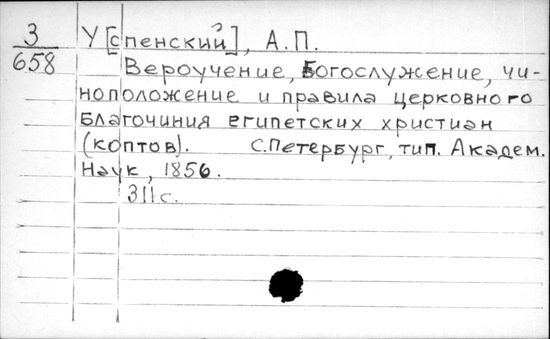 3
658
У[спенский], А.П.
Вероучение, Богослужение, чи-
ноположение и правила церковного
благочиния египетских христиан
(коптов). С.Петербург, тип. Академ.
Наук, 1856.
311с.